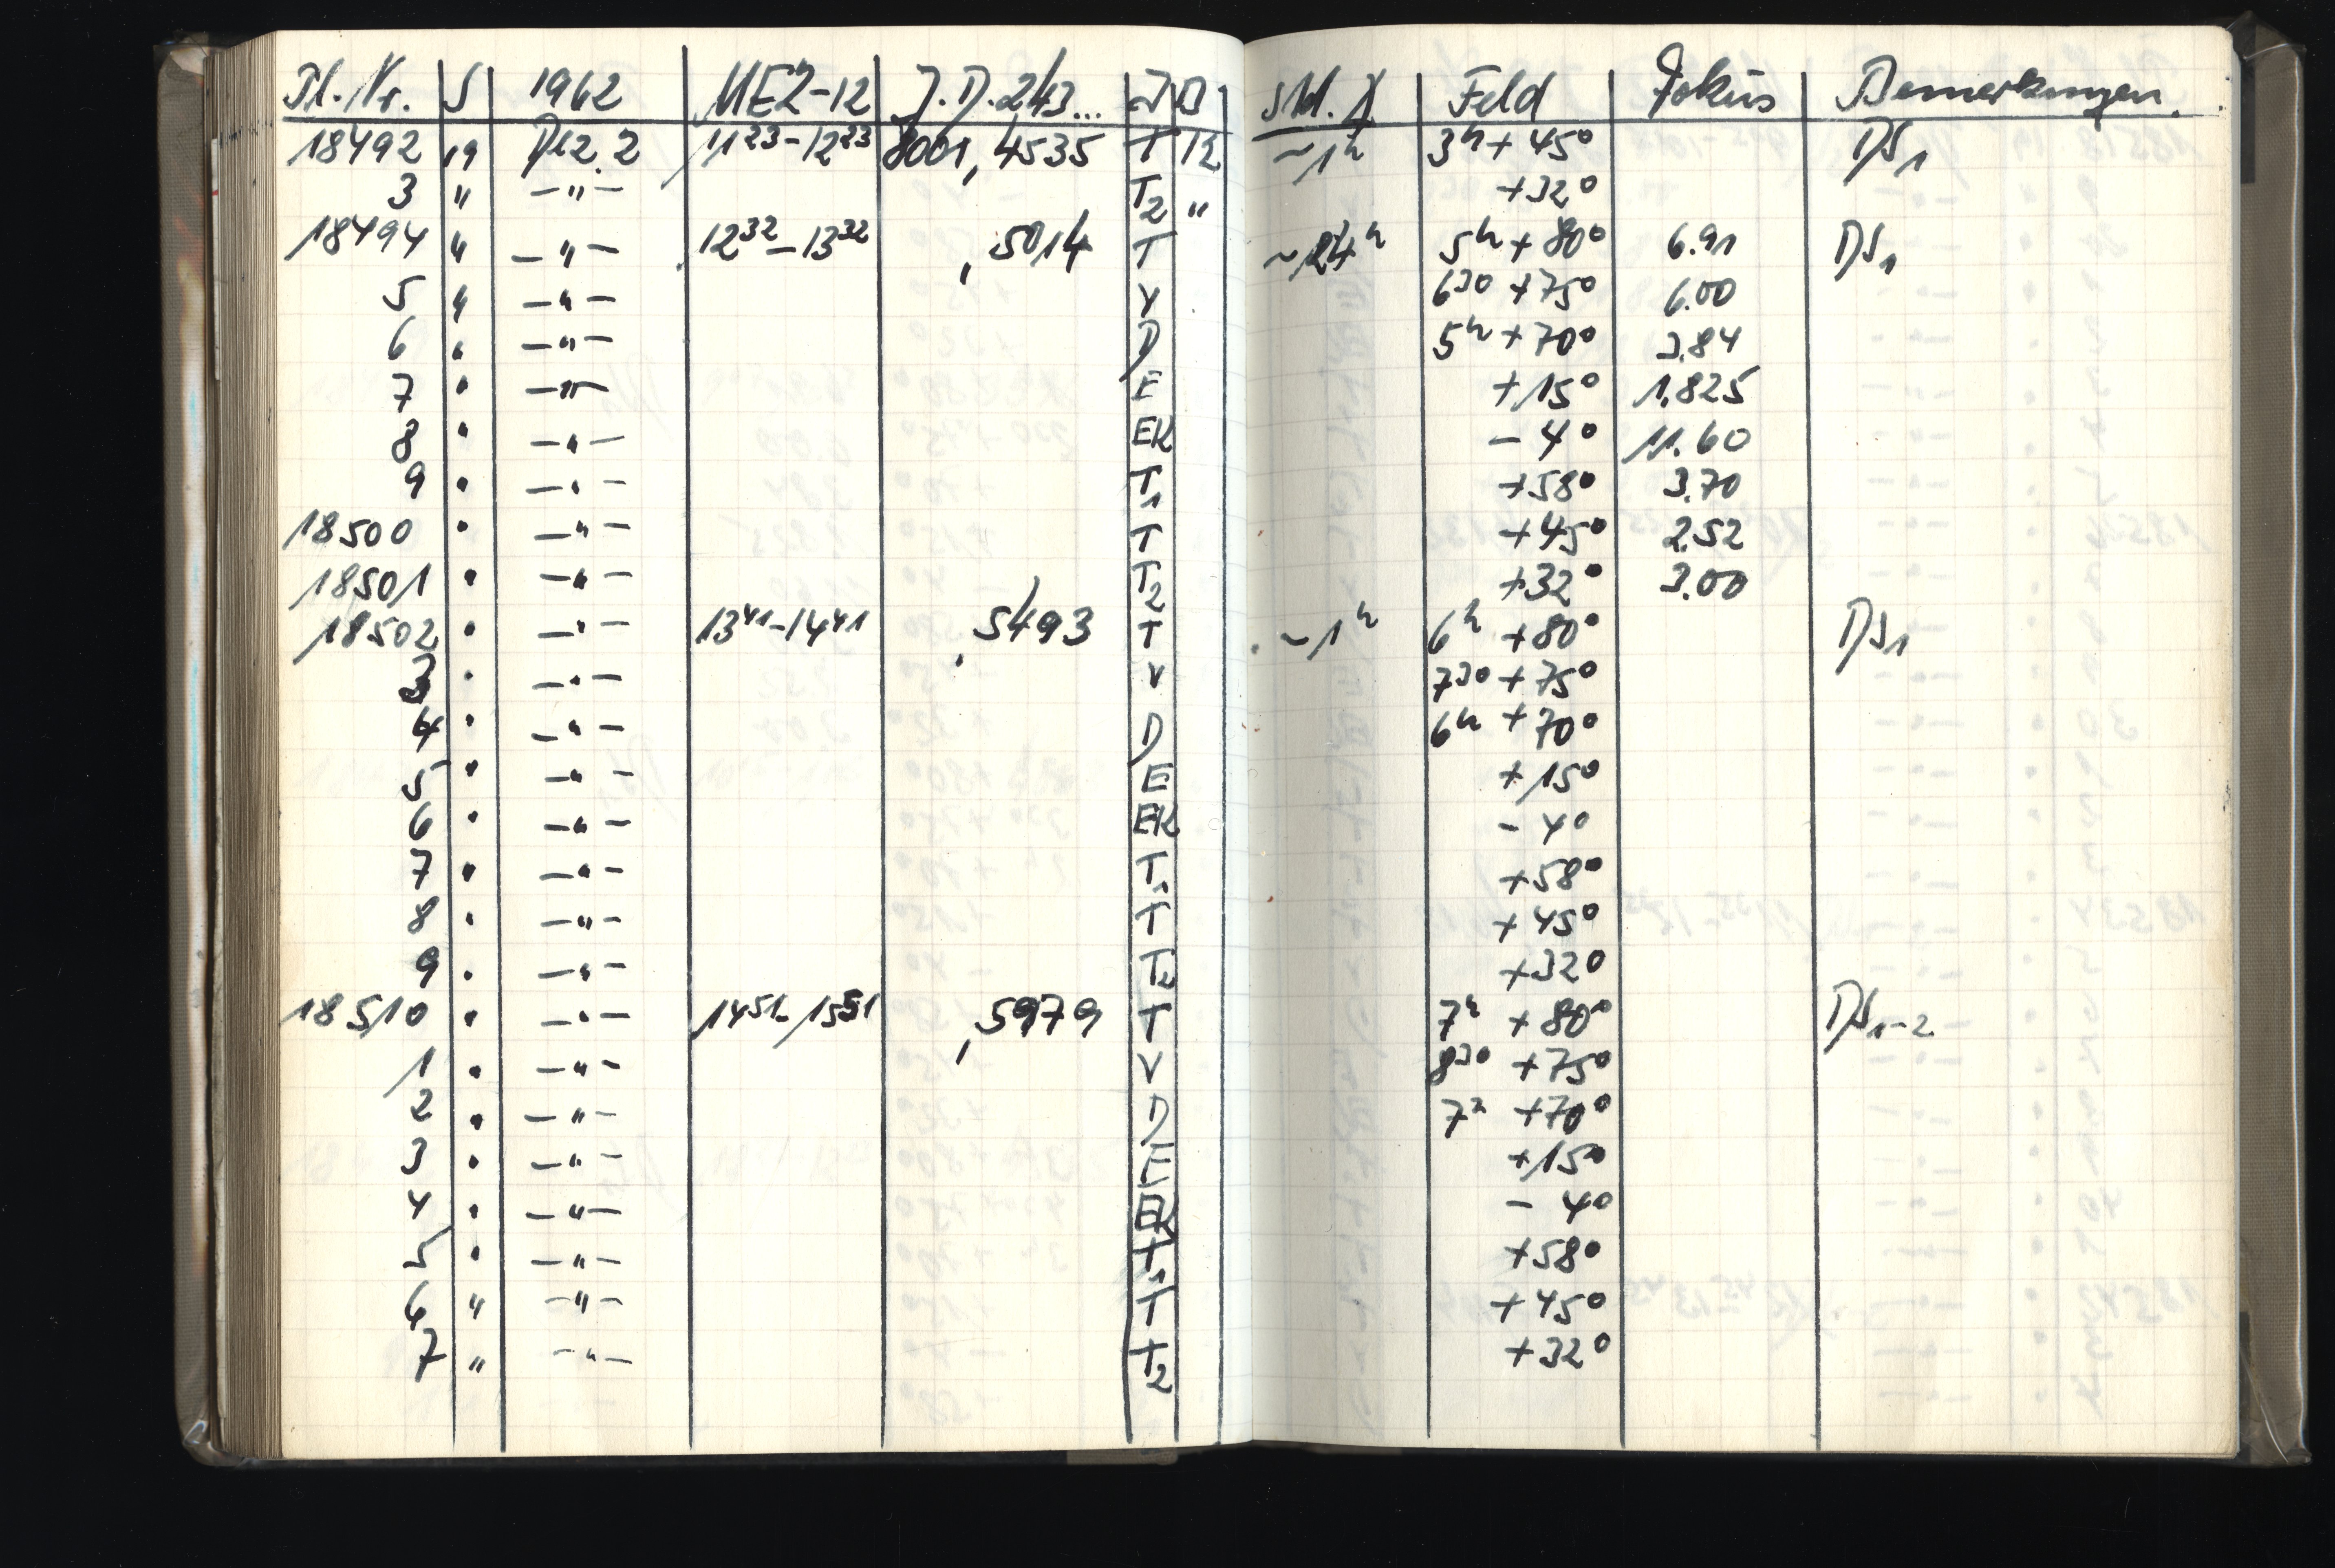 Pl. Nr. S 1962 MEZ-12 J.D. 243... J B Std. ∢ Feld Fokus Bemerkungen.
18492 19 Dez. 2 11²³-12²³ 8001,4535 T B ~1ʰ 3ʰ+45° DS₁
3 " —"— T₂ " +32°
18494 " —"— 12³²-13³² ,5014 T ~24ʰ 5ʰ+80° 6.91 DS₁
5 " —"— V 6³⁰ +75° 6.00
6 " —"— D 5ʰ+70° 3.84
7 " —"— E +15° 1.825
8 " —"— EK -4° 11.60
9 " —"— T₁ +58° 3.70
18500 " —"— T +45° 2.52
18501 " —"— T₂ +32° 3.00
18502 " —"— 13⁴¹-14⁴¹ ,5493 T ~1ʰ 6ʰ +80° DS₁
3 " —"— V 7³⁰ +75°
4 " —"— D 6ʰ +70°
5 " —"— E +15°
6 " —"— EK -4°
7 " —"— T₁ +58°
8 " —"— T +45°
9 " —"— T₂ +32°
18510 " —"— 14⁵¹-15⁵¹ ,5979 T 7ʰ +80° DS₁₋₂
1 " —"— V 8³⁰ +75°
2 " —"— D 7ʰ +70°
3 " —"— E +15°
4 " —"— EK -4°
5 " —"— T₁ +58°
6 " —"— T +45°
7 " —"— T₂ +32°